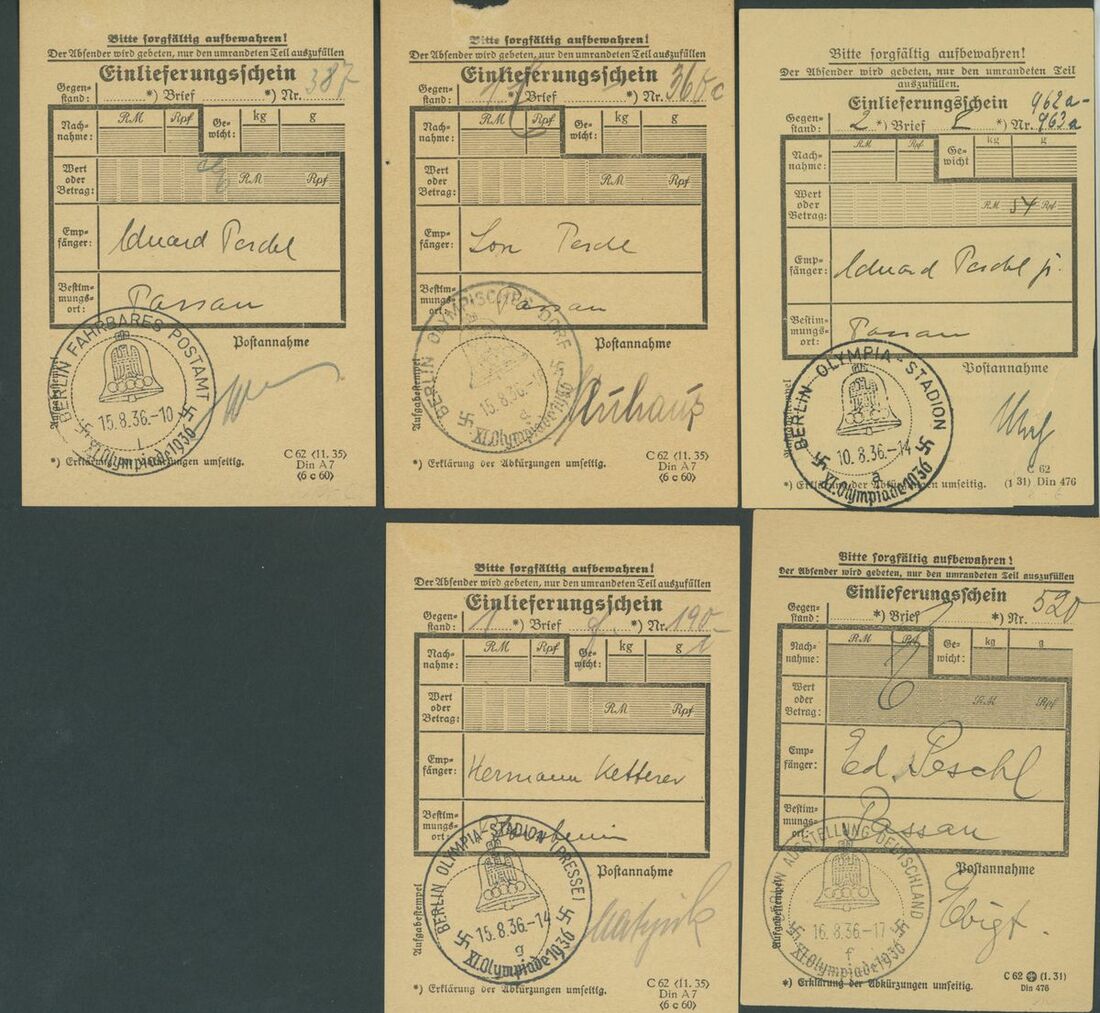 Bitte sorgfältig aufbewahren!
Der Absender wird gebeten, nur den umrandeten Teil auszufüllen
Einlieferungsschein
Gegen=
stand: *) Brief *) Nr. 387
Nach=
nahme: RM Rpf Ge=
wicht: kg g
Wert
oder
Betrag: RM Rpf
Emp=
fänger: Eduard Peschl
Bestim=
mungs=
ort: Passau
Postannahme
Aufgabestempel
BERLIN FAHRBARES POSTAMT
15.8.36.-10
L
XI. Olympiade 1936
*) Erklärung der Abkürzungen umseitig.
C 62 (11. 35)
Din A 7
(6 c 60)
Bitte sorgfältig aufbewahren!
Der Absender wird gebeten, nur den umrandeten Teil auszufüllen
Einlieferungsschein
Gegen=
stand: *) Brief *) Nr. 360c
Nach=
nahme: RM Rpf Ge=
wicht: kg g
Wert
oder
Betrag: RM Rpf
Emp=
fänger: Peschl
Bestim=
mungs=
ort: Passau
Postannahme
Aufgabestempel
BERLIN OLYMPISCHES DORF
15.8.36.-
XI. Olympiade 1936
*) Erklärung der Abkürzungen umseitig.
C 62 (11. 35)
Din A 7
(6 c 60)
Bitte sorgfältig aufbewahren!
Der Absender wird gebeten, nur den umrandeten Teil
auszufüllen.
Einlieferungsschein 962a-
Gegen=
stand: 2 *) Brief *) Nr. 963a
Nach=
nahme: RM Rpf Ge=
wicht kg g
Wert
oder
Betrag: RM 54 Rpf
Emp=
fänger: Eduard Peschl jr.
Bestim=
mungs=
ort: Passau
Postannahme
BERLIN OLYMPIA-STADION
10.8.36.-14
a
XI. Olympiade 1936
*) Erklärung der Abkürzungen umseitig.
C 62
(1 31) Din 476
Bitte sorgfältig aufbewahren!
Der Absender wird gebeten, nur den umrandeten Teil auszufüllen
Einlieferungsschein
Gegen=
stand: 1 *) Brief *) Nr. 190
Nach=
nahme: RM Rpf Ge=
wicht: kg g
Wert
oder
Betrag: RM Rpf
Emp=
fänger: Hermann Ketterer
Bestim=
mungs=
ort:
Postannahme
Aufgabestempel
BERLIN OLYMPIA-STADION (PRESSE)
15.8.36.-14
g
XI. Olympiade 1936
*) Erklärung der Abkürzungen umseitig.
C 62 (11. 35)
Din A 7
(6 c 60)
Bitte sorgfältig aufbewahren!
Der Absender wird gebeten, nur den umrandeten Teil auszufüllen
Einlieferungsschein
Gegen=
stand: *) Brief *) Nr. 520
Nach=
nahme: RM Rpf Ge=
wicht: kg g
Wert
oder
Betrag: RM Rpf
Emp=
fänger: Ed. Peschl
Bestim=
mungs=
ort: Passau
Postannahme
Aufgabestempel
AUSSTELLUNG DEUTSCHLAND
16.8.36.-17
f
XI. Olympiade 1936
*) Erklärung der Abkürzungen umseitig.
C 62 (1. 31)
Din 476